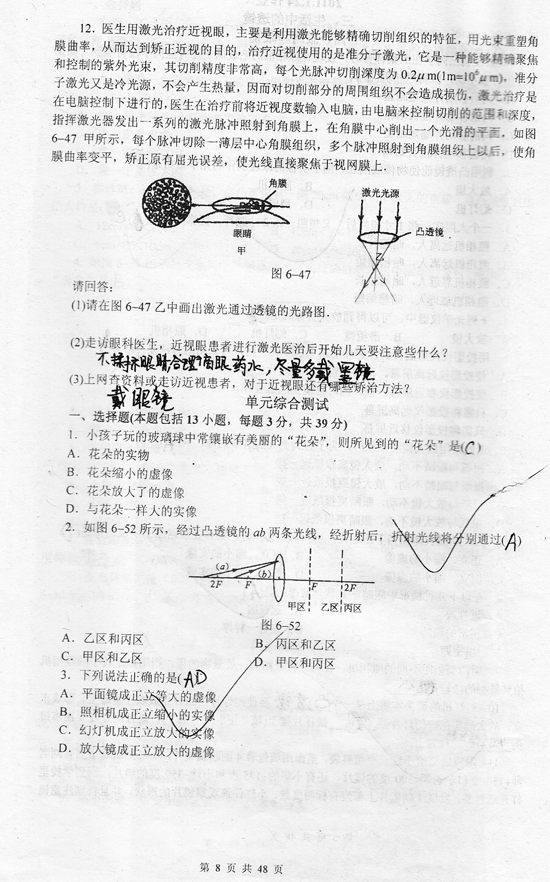 12. 医生用激光治疗近视眼，主要是利用激光能够精确切削组织的特征，用光束重塑角
膜曲率，从而达到矫正近视的目的，治疗近视使用的是准分子激光，它是一种能够精确聚焦
和控制的紫外光束，其切削精度非常高，每个光脉冲切削深度为 0.2μm(1m=10⁶μm)，准分
子激光又是冷光源，不会产生热量，因而对切削部分的周围组织不会造成损伤，激光治疗是
在电脑控制下进行的，医生在治疗前将近视度数输入电脑，由电脑来控制切削的范围和深度，
指挥激光器发出一系列的激光脉冲照射到角膜上，在角膜中心削出一个光滑的平面，如图
6-47 甲所示，每个脉冲切除一薄层中心角膜组织，多个脉冲照射到角膜组织上以后，使角
膜曲率变平，矫正原有屈光误差，使光线直接聚焦于视网膜上．
角膜
眼睛
甲
激光光源
凸透镜
乙
图 6-47
请回答：
(1)请在图 6-47 乙中画出激光通过透镜的光路图．
(2)走访眼科医生，近视眼患者进行激光医治后开始几天要注意些什么？
不揉眼睛合理滴眼药水，尽量多戴墨镜
(3)上网查资料或走访近视患者，对于近视眼还有哪些矫治方法？
戴眼镜
单元综合测试
一、选择题(本题包括 13 小题，每题 3 分，共 39 分)
1. 小孩子玩的玻璃球中常镶嵌有美丽的“花朵”，则所见到的“花朵”是(C)
A. 花朵的实物
B. 花朵缩小的虚像
C. 花朵放大了的虚像
D. 与花朵一样大的实像
2. 如图 6-52 所示，经过凸透镜的 ab 两条光线，经折射后，折射光线将分别通过(A)
(a)
(b)
2F F F 2F
甲区 乙区 丙区
图 6-52
A. 乙区和丙区 B. 丙区和乙区
C. 甲区和乙区 D. 甲区和丙区
3. 下列说法正确的是(AD
A. 平面镜成正立等大的虚像
B. 照相机成正立缩小的实像
C. 幻灯机成正立放大的实像
D. 放大镜成正立放大的虚像
第 8 页 共 48 页